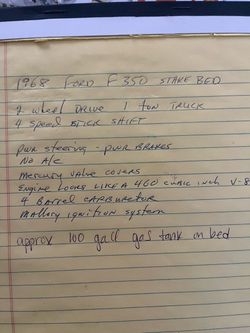 1968 FORD F350 STAKE BED
2 wheel DRIVE 1 ton TRUCK
4 Speed STICK SHIFT
PWR steering - PWR BRAKES
NO A/C
Mercury valve covers
Engine looks like A 460 cubic inch V-8
4 Barrel CARBURATOR
Mallory ignition system
approx 100 gall gas tank on bed